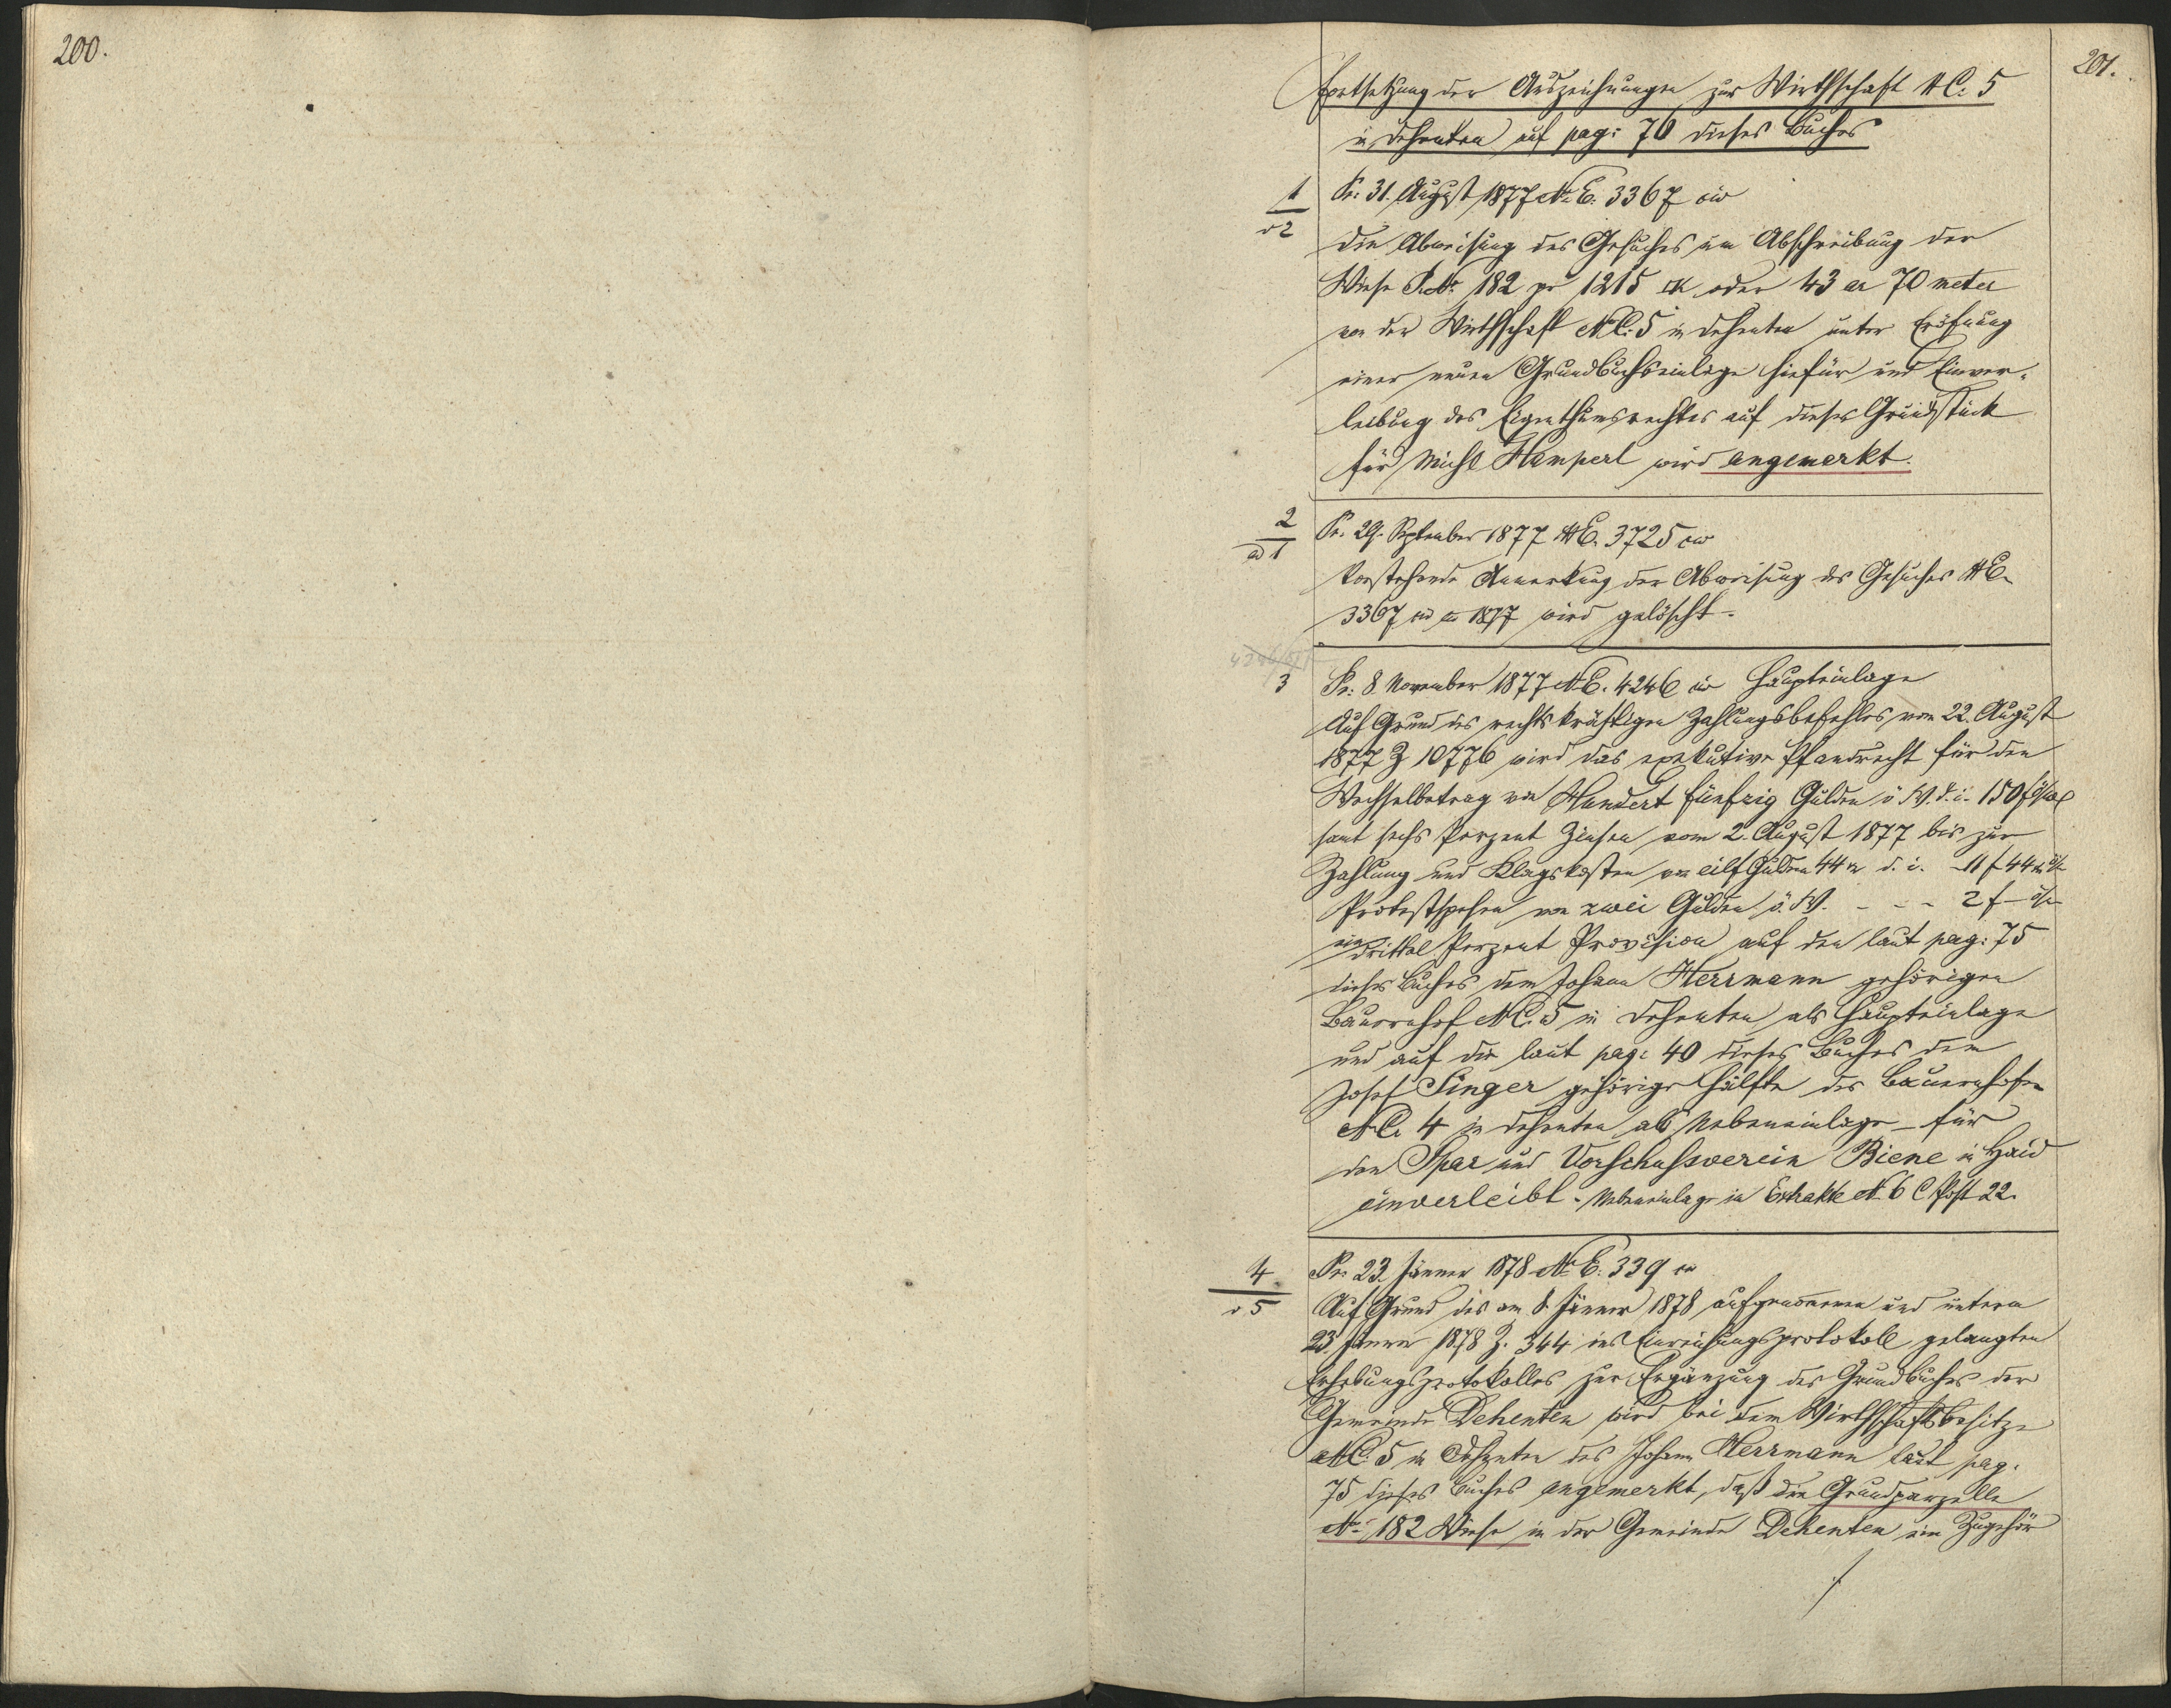 200.
201.
Fortsetzung der Auszeichnungen zur Wirthschaft NC: 5
in Dehenten auf pag: 76 dieses Buches
1
v 2
Pr: 31. August 1877 NE. 3367 civ
die Abweisung des Gesuches um Abschreibung der
Wiese P. N: 182 pr 1215 □K oder 43 ar 70 meter
von der Wirthschaft NC: 5 in Dehenten unter Eröfnung
einer neuen Grundbuchseinlage hiefür und Einver-
leibung des Eigenthumsrechtes auf dieses Grundstück
für Michl Hamperl wird angemerkt.
2
ad 1
Pr. 29. September 1877 NE. 3725 civ
Vorstehende Anmerkung der Abweisung des Gesuches NE.
3367 civ 1877 wird gelöscht.
3
Pr: 8 November 1877 NE. 4246 civ Haupteinlage
Auf Grund des rechtskräftigen Zahlungsbefehles vom 22. August
1877 Z 10776 wird das exekutive Pfandrecht für den
Wechselbetrag von Hundert fünfzig Gulden ö. W. d. i. 150 f öW
samt sechs Perzent Zinsen vom 2. August 1877 bis zur
Zahlung und Klagskosten von eilf Gulden 44 kr d. i. 11 f 44 kr
Protestspesen von zwei Gulden ö. W. - - - 2 f -
ein drittel Perzent Provision auf den laut pag: 75
dieses Buches dem Johann Herrmann gehörigen
Bauernhof NC. 5 in Dehenten als Haupteinlage
und auf die laut pag: 40 dieses Buches dem
Josef Singer gehörige Hälfte des Bauernhofes
NC. 4 in Dehenten als Nebeneinlage - für
den Spar und Vorschußverein Biene in Haid
einverleibt - Nebeneinlage in Extrakte N. 6 C Post 22.
4
v 5
Pr: 23. Jänner 1878 NE: 339 civ
Auf Grund des am 8 Jänner 1878 aufgenommen und unterm
23. Jänner 1878 Z. 344 ins Einreichungsprotokoll gelangten
Erhebungsprotokolles zur Ergänzung des Grundbuches der
Gemeinde Dehenten wird bei dem Wirthschaftsbesitze
NC. 5 in Dehenten des Johann Herrmann laut pag.
75 dieses Buches angemerkt, daß die Grundparzelle
N: 182 Wiese in der Gemeinde Dehenten ein Zugehör